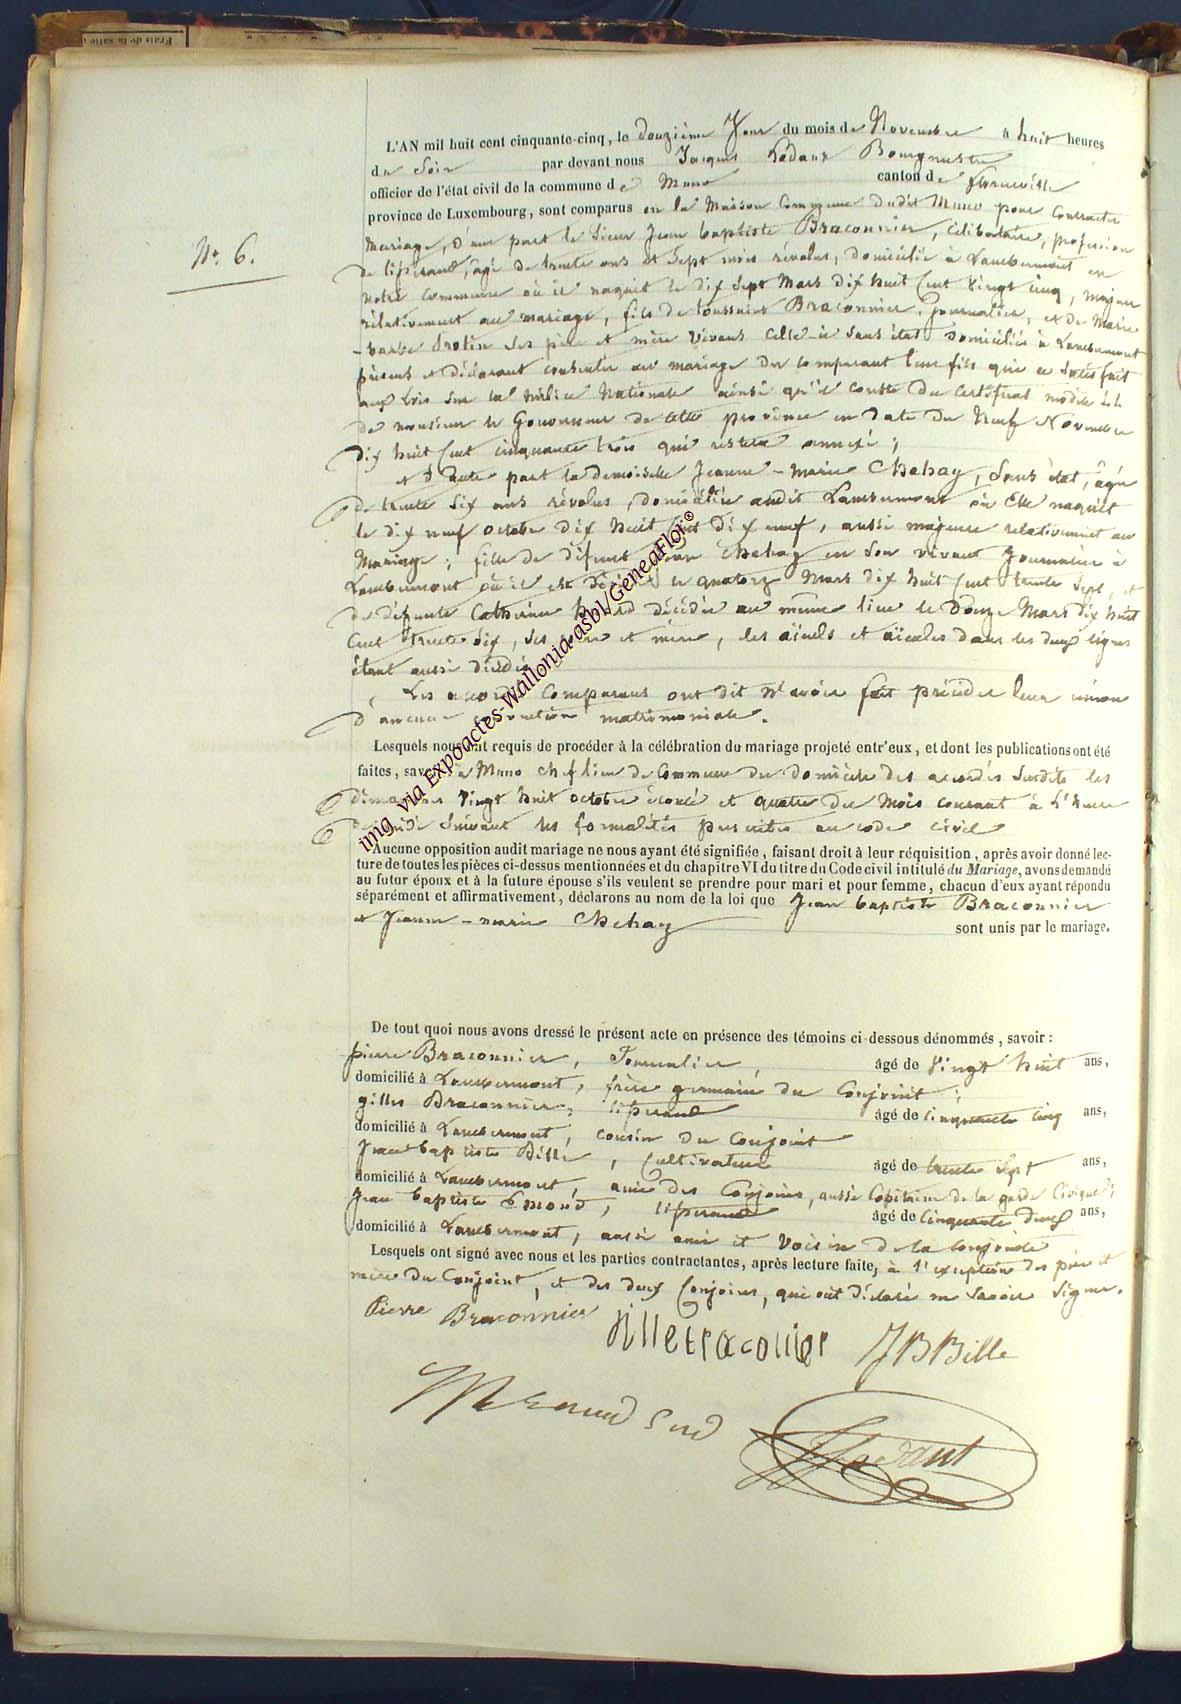 Frais de la salle
N.º 6.
L'AN mil huit cent cinquante-cinq, le douzième Jour du mois de Novembre à huit heures
du Soir par devant nous Jacques Ledant Bourgmestre
officier de l'état civil de la commune de Muno canton de florenville
province de Luxembourg, sont comparus en la Maison Commune dudit Muno pour Contracter
Mariage, d'une part le Sieur Jean baptiste Braconnier, Célibataire, profession
de tisserand, âgé de trente ans et Sept mois révolus, domicilié à Lambermont en
notre Commune où il naquit le dix Sept Mars dix huit Cent Vingt Cinq, majeur
rélativement au mariage, fils de toussaint Braconnier, Journalier, et de Marie
-barbe Protin Ses père et mère Vivans Celle-ci Sans état domiciliés à Lambermont
présens et déclarant consentir au mariage du comparant leur fils qui a Satisfait
aux lois Sur la Milice Nationale ainsi qu'il Conste du Certificat modèle
de monsieur le Gouverneur de cette province en date du Neuf Novembre
dix huit Cent cinquante trois qui restera annexé ;
et d'autre part la demoiselle Jeanne-Marie Chehay, Sans état, âgée
de trente Six ans révolus, domiciliée audit Lambermont où Elle naquit
le dix neuf octobre dix huit Cent dix neuf, aussi majeure relativement au
Mariage ; fille de défunt Jean Chehay en Son vivant Journalier à
Lambermont où il est décédé le quatorze Mars dix huit Cent trente Sept, et
de défunte Catherine décédée au même lieu le Douze Mars dix huit
Cent trente Six, Ses père et mère, les aïeuls et aïeules dans les deux lignes
étant aussi décédés
Les accordés Comparans ont dit n'avoir fait précéder leur union
d'aucune convention matrimoniale.
Lesquels nous ont requis de procéder à la célébration du mariage projeté entr'eux, et dont les publications ont été
faites, savoir à Muno Chef lieu de Commune du domicile des accordés Susdits les
dimanches Vingt huit octobre écoulé et quatre du Mois courant à l'heure
de midi Suivant les formalités prescrites au code Civil
Aucune opposition audit mariage ne nous ayant été signifiée, faisant droit à leur réquisition, après avoir donné lec-
ture de toutes les pièces ci-dessus mentionnées et du chapitre VI du titre du Code civil intitulé du Mariage, avons demandé
au futur époux et à la future épouse s'ils veulent se prendre pour mari et pour femme, chacun d'eux ayant répondu
séparément et affirmativement, déclarons au nom de la loi que Jean baptiste Braconnier
et Jeanne-marie Chehay sont unis par le mariage.
De tout quoi nous avons dressé le présent acte en présence des témoins ci-dessous dénommés, savoir :
pierre Braconnier, Journalier, âgé de Vingt huit ans,
domicilié à Lambermont, frère germain du Conjoint ;
gilles Braconnier, tisserand âgé de Cinquante Cinq ans,
domicilié à Lambermont, cousin du Conjoint
Jean baptiste Bille, Cultivateur âgé de trente Sept ans,
domicilié à Lambermont, ami des Conjoins, aussi Capitaine de la garde Civique ;
Jean baptiste Emond, tisserand âgé de Cinquante deux ans,
domicilié à Lambermont, aussi ami et Voisin de la Conjointe
Lesquels ont signé avec nous et les parties contractantes, après lecture faite, à l'exception des père et
mère du Conjoint, et des deux Conjoins, qui ont déclaré ne Savoir Signer.
Pierre Braconnier JBBille
Ledant
img via Expoactes-Wallonia-asbl/GeneaFlor©